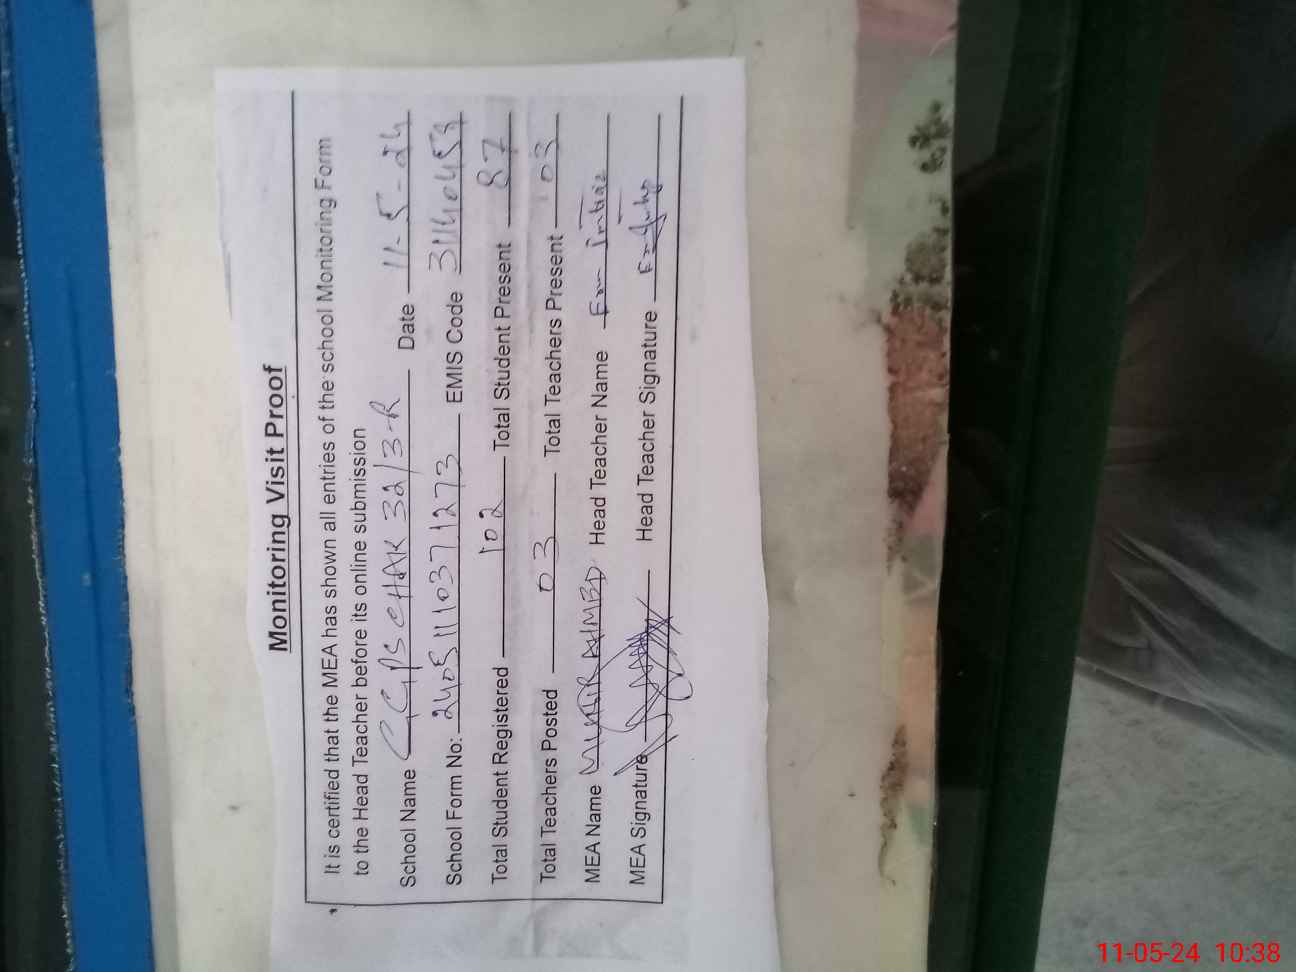 Monitoring Visit Proof
It is certified that the MEA has shown all entries of the school Monitoring Form
to the Head Teacher before its online submission
School Name GGPS CHAK 32/3-R Date 11-5-24
School Form No: 24051110371273 EMIS Code
Total Student Registered 102 Total Student Present 87
Total Teachers Posted 03 Total Teachers Present 03
MEA Name AHMED Head Teacher Name Imtiaz
MEA Signature Head Teacher Signature
11-05-24 10:38